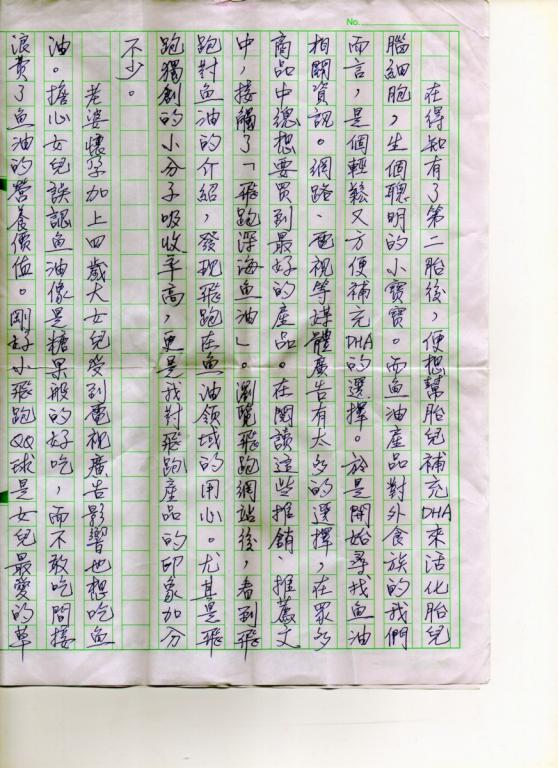 No.
在得知有了第二胎後，便想幫胎兒補充DHA來活化胎兒
腦細胞，生個聰明的小寶寶。而魚油產品對外食族的我們
而言，是個輕鬆又方便補充DHA的選擇。於是開始尋找魚油
相關資訊。網路、電視等媒體廣告有太多的選擇，在眾多
商品中總想要買到最好的產品。在閱讀這些推銷、推薦文
中，接觸了「飛跑深海魚油」。瀏覽飛跑網站後，看到飛
跑對魚油的介紹，發現飛跑在魚油領域的用心。尤其是飛
跑獨創的小分子吸收率高，更是我對飛跑產品的印象加分
不少。
老婆懷孕加上四歲大女兒受到電視廣告影響也想吃魚
油。擔心女兒誤認魚油像是糖果般的好吃，而不敢吃間接
浪費了魚油的營養價值。剛好小飛跑QQ球是女兒最愛的草